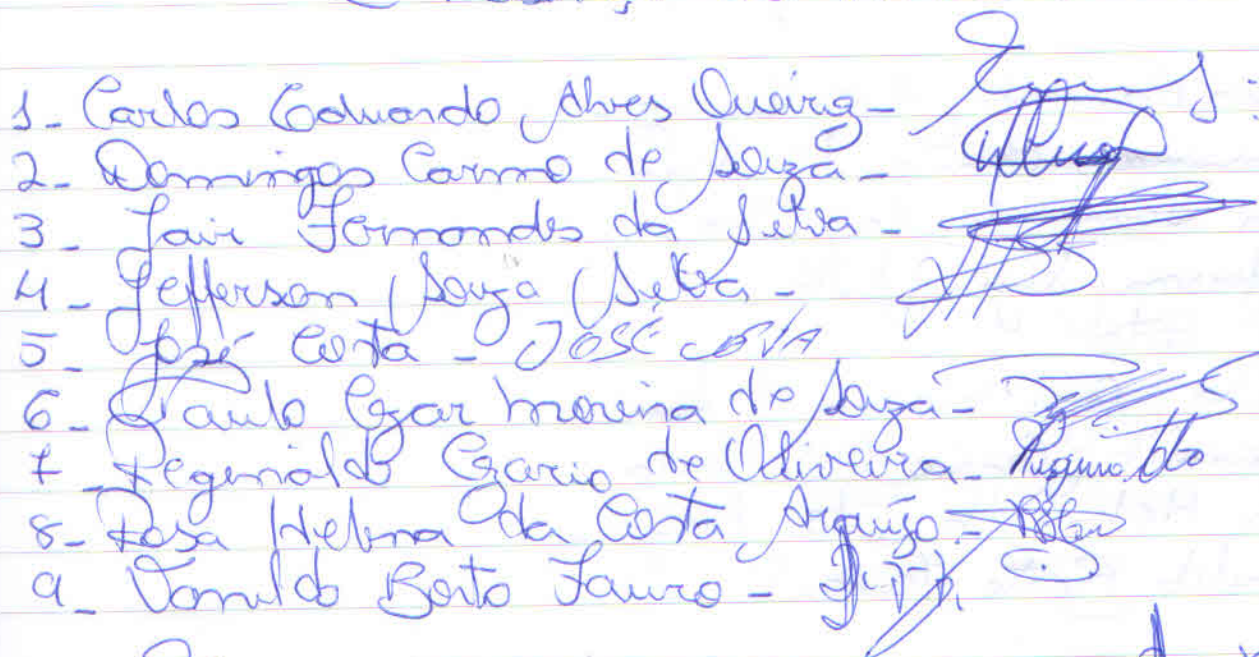 1- Carlos Eduardo Alves Queiroz-
2- Domingos Carmo de Souza-
3- Jair Fernandes da Silva-
4- Jefferson Souza Silva-
5- José Costa - JOSÉ COSTA
6- Paulo Cezar Moreira de Souza-
7- Reginaldo Cezario de Oliveira- Reginaldo
8- Rosa Helena da Costa Araújo-
9- Vanildo Bento Lauro-